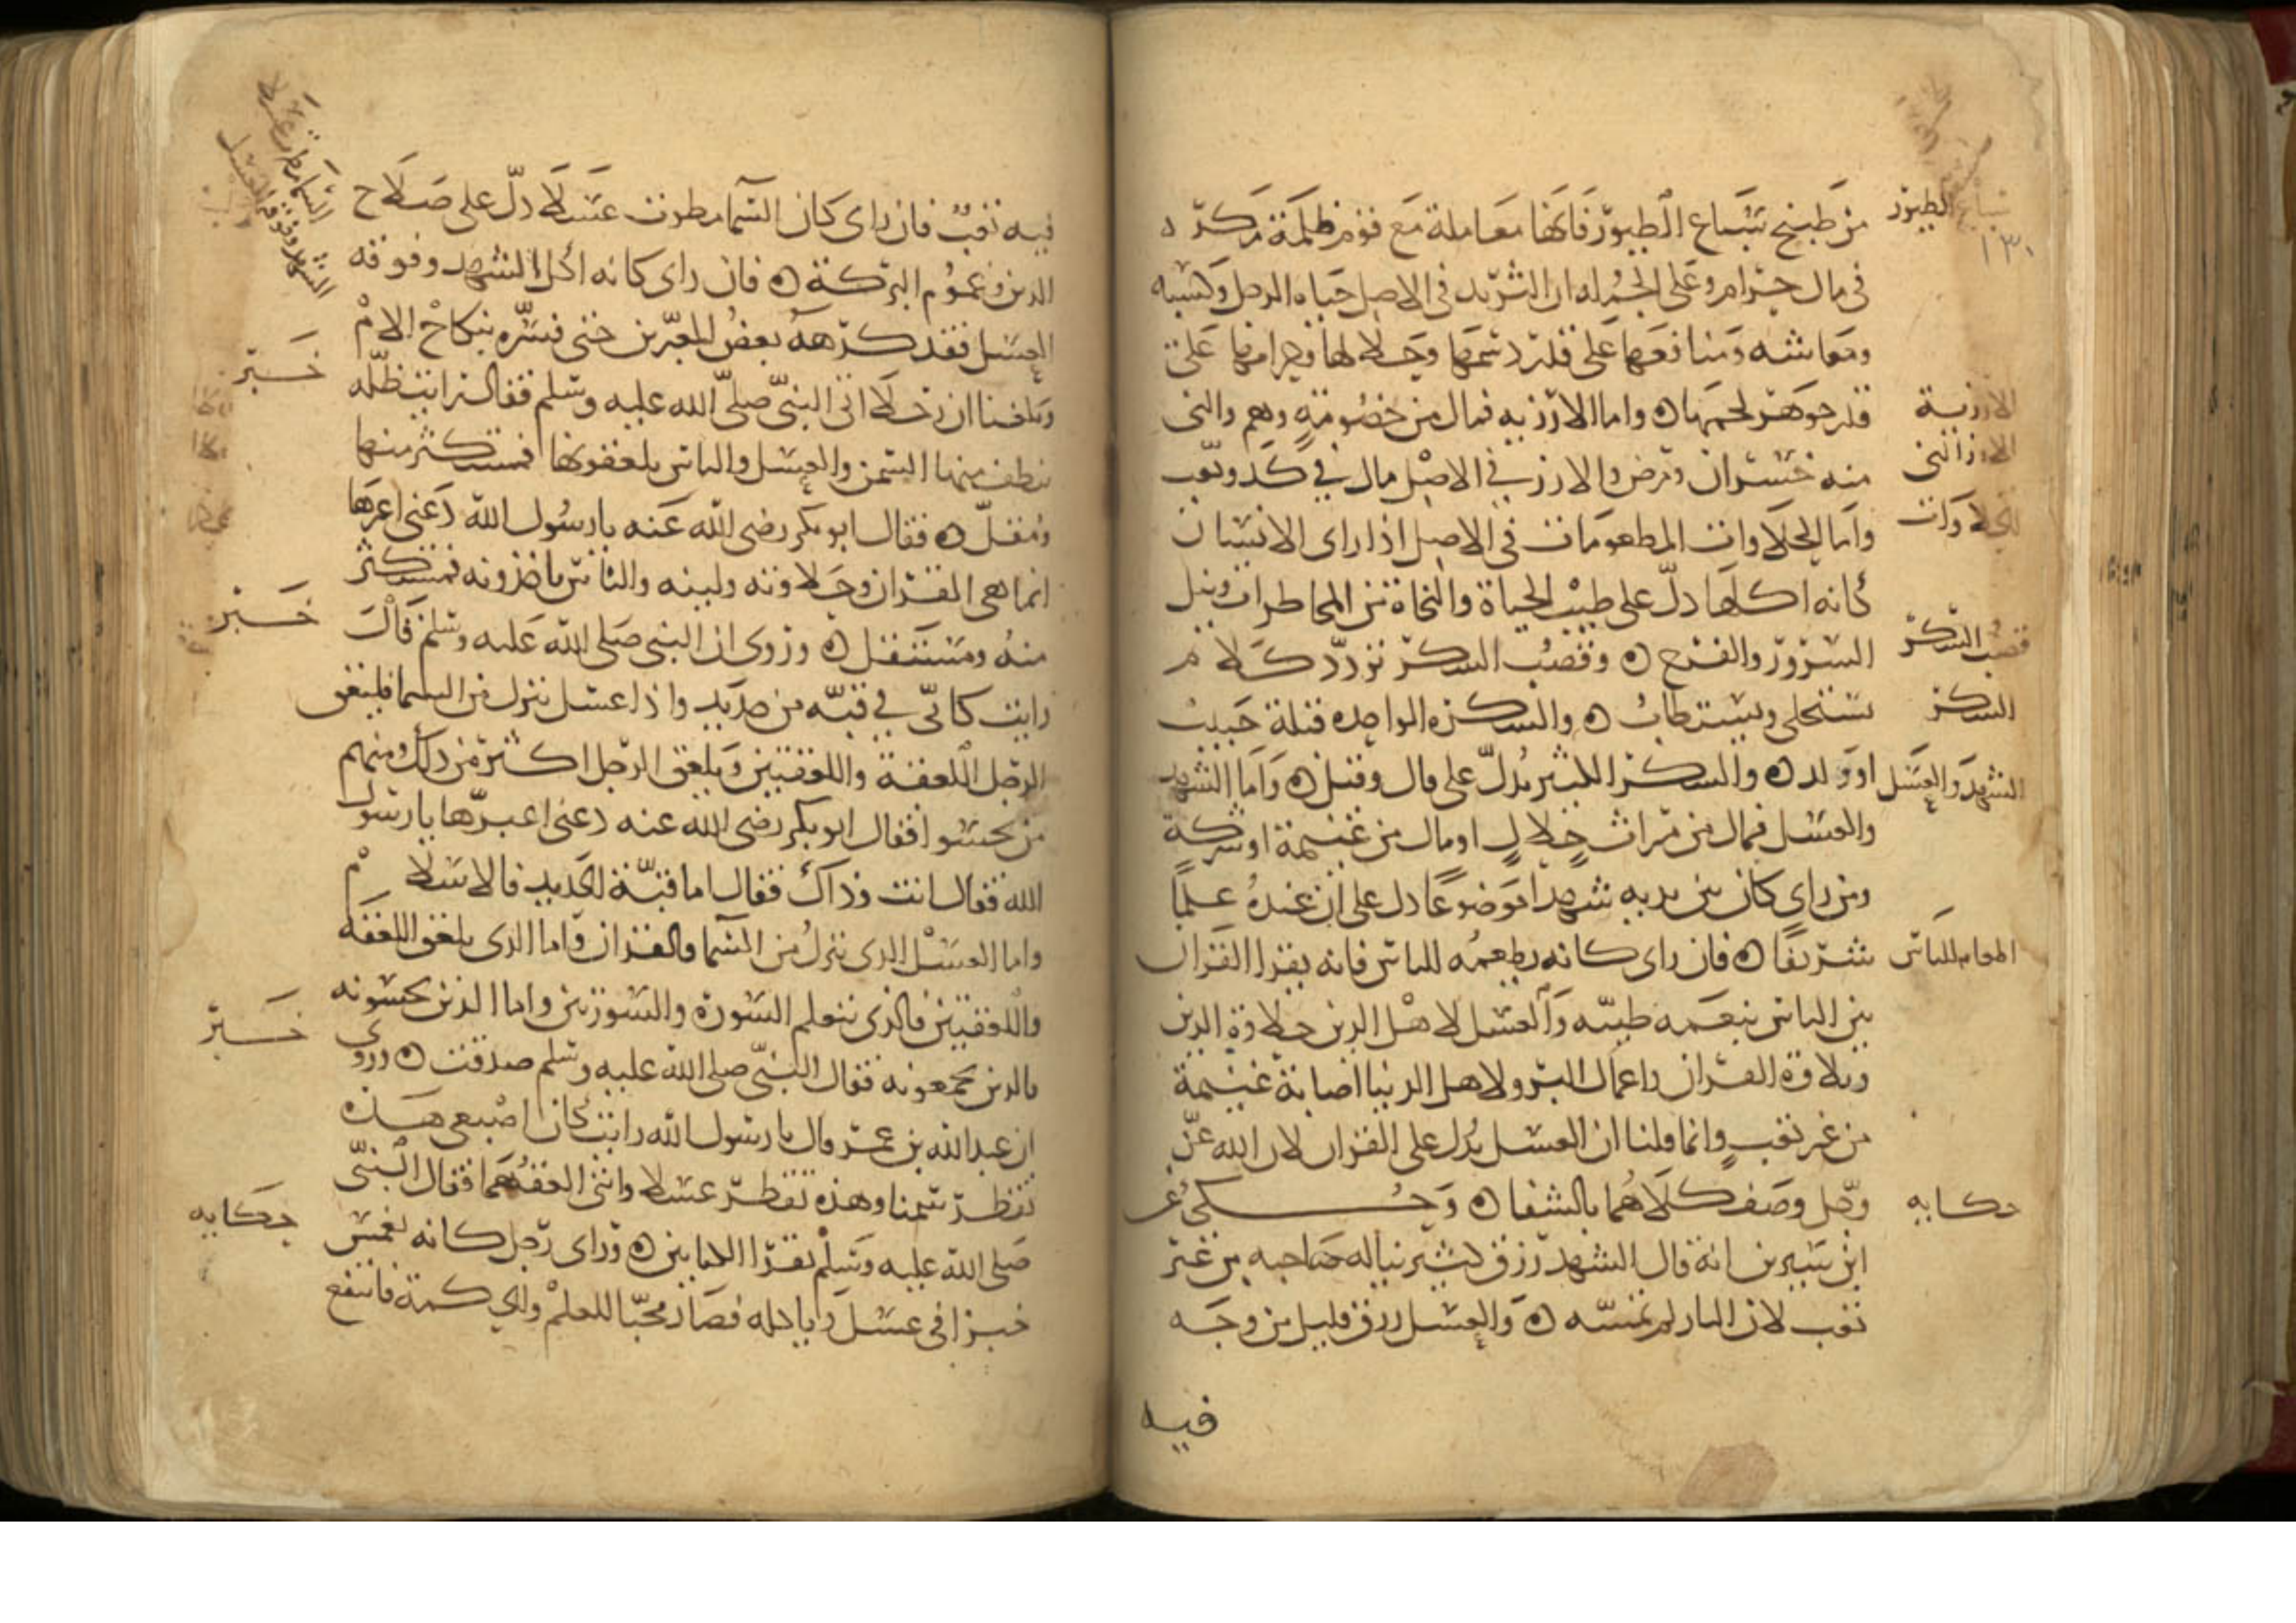 سباع الطيور
١٣٠
من طبيخ سباع الطيور فانها معاملة مع قوم ظلمة مكرة
فى مال حرام وعلى الجمله ان الثريد فى الاصل حياه الرجل وكسبه
ومعاشه ومنافعها على قدر دسمها وحلالها وحرامها على
الارزية
قدر جوهر لحمها واما الارزيه فمال من خصومة وهم والنى
الارز النى
منه خسران ومرض والارز فى الاصل مال فى كد وتعب
الحلاوات
واما الحلاوات المطعومات فى الاصل اذا راى الانسان
كانه اكلها دل على طيب الحياة والنجاة من المخاطرات ونيل
قصب السكر
السرور والفرح وقصب السكر تردد كلام
السكر
يستحلى ويستطاب والسكره الواحده قبلة حبيب
الشهد والعسل
او ولد والسكر الكثير يدل على قال وقيل واما الشهد
والعسل فمال من مراث حلال او مال من غنيمة او شركة
ومن راى كان بين يديه شهدا موضوعا دل على ان عنده علما
اطعام الناس
شريفا فان راى كانه يطعمه الناس فانه يقرا القران
بين الناس بنغمه طيبه والعسل لاهل الدين حلاوة الدين
وتلاوة القران واعمال البر ولاهل الدنيا اصابة غنيمة
من غير تعب وانما قلنا ان العسل يدل على القران لان الله عز
حكايه
وجل وصف كلاهما بالشفا وحكى عن
ابن سيرين انه قال الشهد رزق كثير يناله صاحبه من غير
تعب لان النار لم تمسه والعسل رزق قليل من وجه
فيه
فيه تعب فان راى كان السما مطرت عسلا دل على صلاح
الدين وعموم البركة فان راى كانه اكل الشهد وفوقه
العسل فقد كرهه بعض المعبرين حتى فسره بنكاح الام
خبر
وبلغنا ان رجلا اتى النبى صلى الله عليه وسلم فقال رايت ظله
تنطف منها السمن والعسل والناس يلعقونها فمستكثر منها
ومقل فقال ابو بكر رضى الله عنه يا رسول الله دعنى اعبرها
انما هى القران وحلاوته ولينه والناس ياخذونه فمستكثر
خبر
منه ومستقل وروى ان النبى صلى الله عليه وسلم قال
رايت كانى فى قبه من حديد واذا عسل ينزل من السما فيلعق
الرجل اللعقة واللعقتين ويلعق الرجل اكثر من ذلك ومنهم
من يحسوا فقال ابو بكر رضى الله عنه دعنى اعبرها يا رسول
الله فقال انت وذاك فقال اما قبة الحديد فالاسلام
واما العسل الذى ينزل من السما فالقران واما الذى يلعق اللعقه
واللعقتين فالذى يتعلم السورة والسورتين واما الذين يحسونه
خبر
فالذين يجمعونه فقال النبى صلى الله عليه وسلم صدقت وروى
ان عبد الله بن عمر قال يا رسول الله رايت كان اصبعى هذه
تقطر سمنا وهذه تقطر عسلا وانى العقهما فقال النبى
حكايه
صلى الله عليه وسلم تقرا الكتابين وراى رجل كانه يغمس
خبزا فى عسل وياكله فصار محبا للعلم والحكمة فانتفع